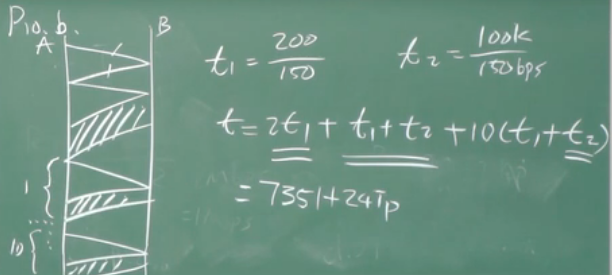 P10. b.
A B
t₁ = 200/150 t₂ = 100k/150bps
t = 2t₁ + t₁ + t₂ + 10(t₁ + t₂)
1
= 7351 + 24Tp
10